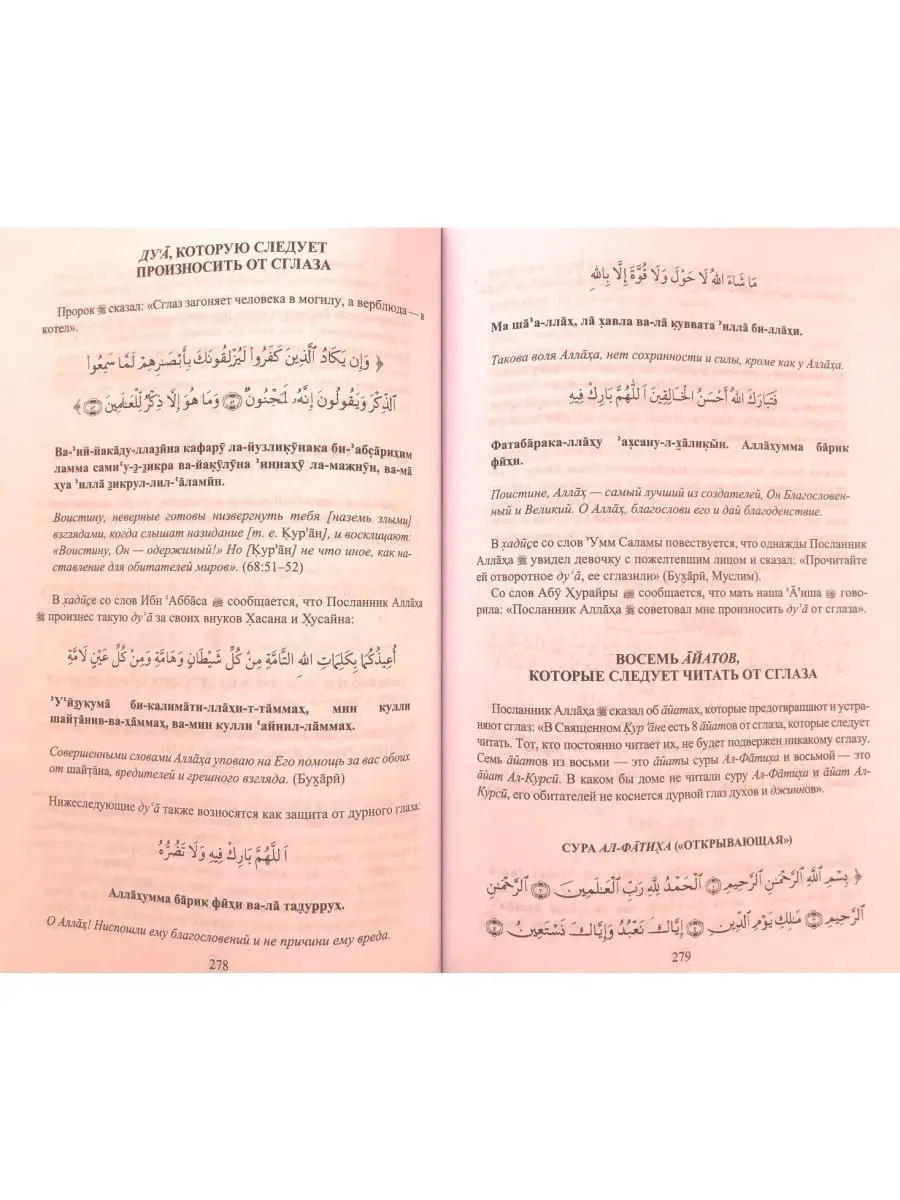 ДУ‘Ā, КОТОРУЮ СЛЕДУЕТ
ПРОИЗНОСИТЬ ОТ СГЛАЗА
Пророк ﷺ сказал: «Сглаз загоняет человека в могилу, а верблюда — в
котел».
﴿ وَإِن يَكَادُ ٱلَّذِينَ كَفَرُواْ لَيُزْلِقُونَكَ بِأَبْصَٰرِهِمْ لَمَّا سَمِعُواْ
ٱلذِّكْرَ وَيَقُولُونَ إِنَّهُۥ لَمَجْنُونٌ ۝٥١ وَمَا هُوَ إِلَّا ذِكْرٌ لِّلْعَٰلَمِينَ ۝٥٢ ﴾
Ва-’ий-йакāду-ллаз̱ӣна кафарӯ ла-йузлик̣ӯнака би-’абс̣āрихим
ламма сами‘у-з̱-з̱икра ва-йак̣ӯлӯна ’иннахӯ ла-мажнӯн, ва-мā
хуа ’иллā з̱икрул-лил-‘āламӣн.
Воистину, неверные готовы низвергнуть тебя [наземь злыми]
взглядами, когда слышат назидание [т. е. К̣ур’āн], и восклицают:
«Воистину, Он — одержимый!» Но [К̣ур’āн] не что иное, как на-
ставление для обитателей миров». (68:51–52)
В х̣адӣс̱е со слов Ибн ‘Аббāса ﷺ сообщается, что Посланник Аллāха
ﷺ произнес такую ду‘ā за своих внуков Х̣асана и Х̣усайна:
أُعِيذُكُمَا بِكَلِمَاتِ اللهِ التَّامَّةِ مِنْ كُلِّ شَيْطَانٍ وَهَامَّةٍ وَمِنْ كُلِّ عَيْنٍ لَامَّةٍ
’У‘ӣз̱укумā би-калимāти-ллāхи-т-тāммах, мин кулли
шайт̣āнив-ва-хāммах, ва-мин кулли ‘айнил-лāммах.
Совершенными словами Аллāха уповаю на Его помощь за вас обоих
от шайт̣āна, вредителей и грешного взгляда. (Бух̮āрӣ)
Нижеследующие ду‘ā также возносятся как защита от дурного глаза:
اَللَّهُمَّ بَارِكْ فِيهِ وَلَا تَضُرُّهُ
Аллāхумма бāрик фӣхи ва-лā тадуррух.
О Аллāх! Ниспошли ему благословений и не причини ему вреда.
278
مَا شَاءَ اللهُ لَا حَوْلَ وَلَا قُوَّةَ إِلَّا بِاللهِ
Ма шā’а-ллāх, лā х̣авла ва-лā к̣уввата ’иллā би-ллāхи.
Такова воля Аллāха, нет сохранности и силы, кроме как у Аллāха.
فَتَبَارَكَ اللهُ أَحْسَنُ الْخَالِقِينَ اَللَّهُمَّ بَارِكْ فِيهِ
Фатабāрака-ллāху ’ах̣сану-л-х̮āлик̣ӣн. Аллāхумма бāрик
фӣхи.
Поистине, Аллāх — самый лучший из создателей, Он Благословен-
ный и Великий. О Аллāх, благослови его и дай благоденствие.
В х̣адӣс̱е со слов ’Умм Саламы повествуется, что однажды Посланник
Аллāха ﷺ увидел девочку с пожелтевшим лицом и сказал: «Прочитайте
ей отворотное ду‘ā, ее сглазили» (Бух̮āрӣ, Муслим).
Со слов Абӯ Хурайры ﷺ сообщается, что мать наша ‘Ā’иша ﷺ гово-
рила: «Посланник Аллāха ﷺ советовал мне произносить ду‘ā от сглаза».
ВОСЕМЬ ĀЙАТОВ,
КОТОРЫЕ СЛЕДУЕТ ЧИТАТЬ ОТ СГЛАЗА
Посланник Аллāха ﷺ сказал об āйатах, которые предотвращают и устра-
няют сглаз: «В Священном К̣ур’āне есть 8 āйатов от сглаза, которые следует
читать. Тот, кто постоянно читает их, не будет подвержен никакому сглазу.
Семь āйатов из восьми — это āйаты суры Ал-Фāтих̣а и восьмой — это
āйат Ал-Курсӣ. В каком бы доме не читали суру Ал-Фāтих̣а и āйат Ал-
Курсӣ, его обитателей не коснется дурной глаз духов и джиннов».
СУРА АЛ-ФĀТИХ̣А («ОТКРЫВАЮЩАЯ»)
﴿ بِسْمِ ٱللَّهِ ٱلرَّحْمَٰنِ ٱلرَّحِيمِ ۝١ ٱلْحَمْدُ لِلَّهِ رَبِّ ٱلْعَٰلَمِينَ ۝٢ ٱلرَّحْمَٰنِ
ٱلرَّحِيمِ ۝٣ مَٰلِكِ يَوْمِ ٱلدِّينِ ۝٤ إِيَّاكَ نَعْبُدُ وَإِيَّاكَ نَسْتَعِينُ ۝٥
279